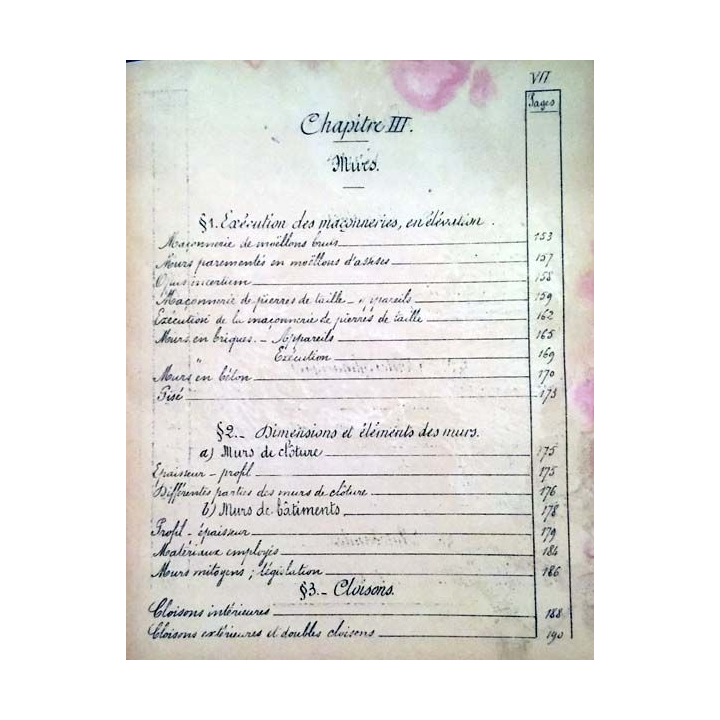 VII
Pages
Chapitre III.
Murs.
§1. Exécution des maçonneries, en élévation.
Maçonnerie de moëllons bruts 153
Murs parementés en moëllons d'assises 157
Opus incertum 158
Maçonnerie de pierres de taille - appareils 159
Exécution de la maçonnerie de pierres de taille 162
Murs en briques. - Appareils 165
" Exécution 169
Murs en béton 170
Pisé 173
§2.- Dimensions et éléments des murs.
a) Murs de clôture 175
Epaisseur - profil 175
Différentes parties des murs de clôture 176
b) Murs de bâtiments 178
Profil - épaisseur 179
Matériaux employés 184
Murs mitoyens ; législation 186
§3.- Cloisons.
Cloisons intérieures 188
Cloisons extérieures et doubles cloisons 190